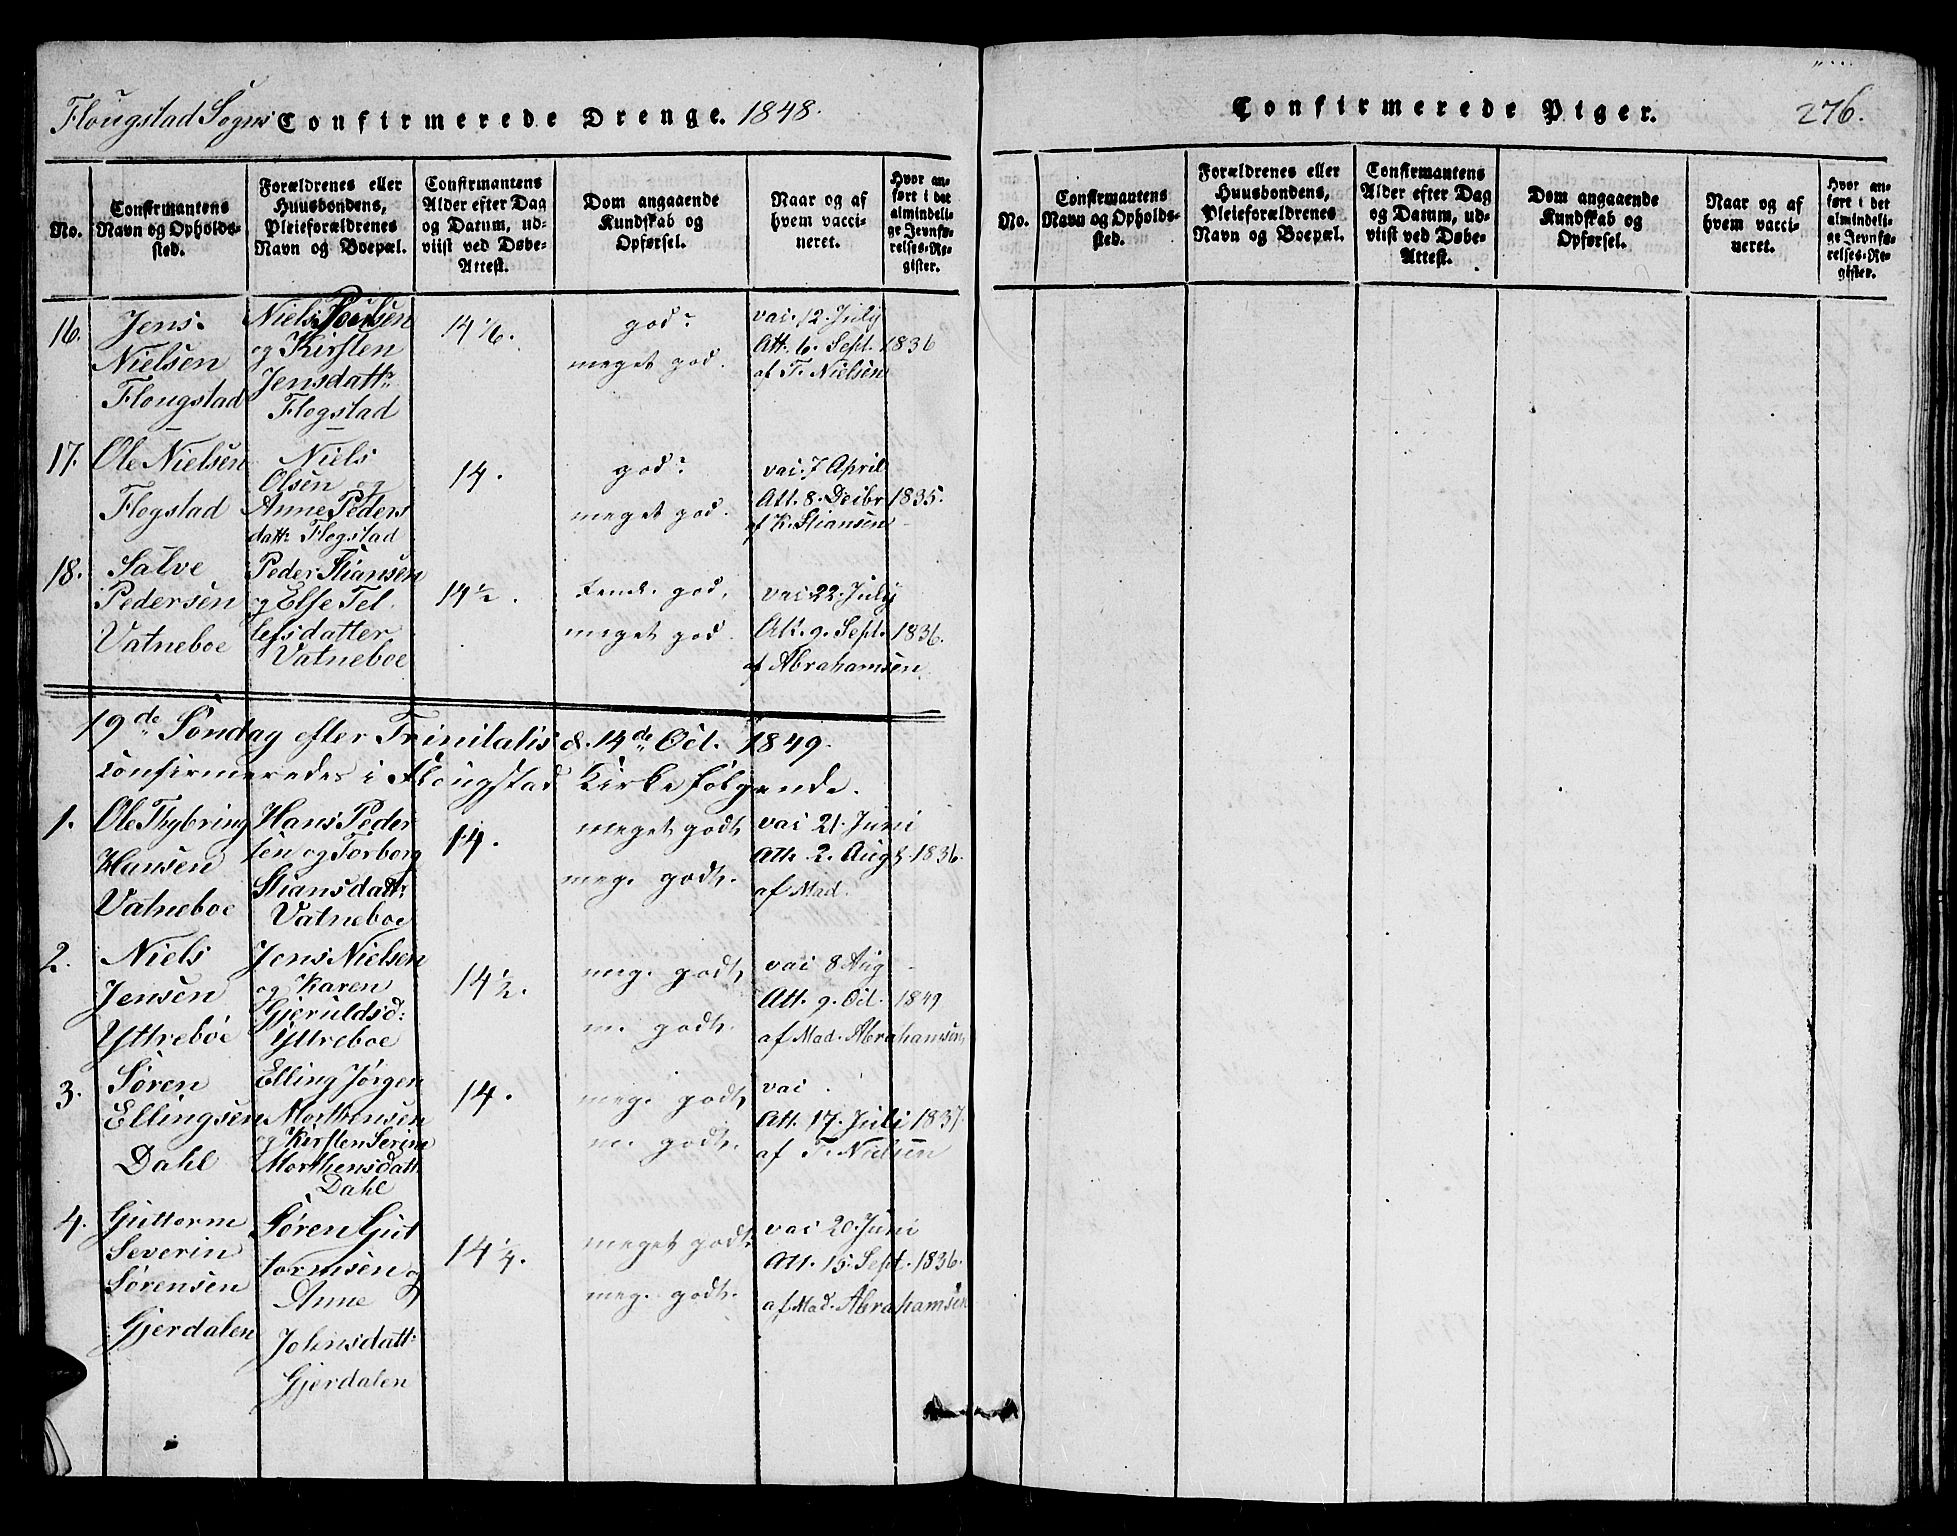 Flougstad Sogns Confirmerede Drenge. 1848.
No.
Confirmantens Navn og Opholds-sted.
Forældrenes eller Huusbondens, Pleieforældrenes Navn og Boepæl.
Confirmantens Alder efter Dag og Datum, ud-viist ved Døbe-Attest.
Dom angaaende Kundskab og Opførsel.
Naar og af hvem vacci-neret.
Hvor an-ført i det almindeli-ge Jevnfø-relses-Re-gister.
16.
Jens
Nielsen
Flougstad
Niels Poulsen
og Kirsten
Jensdattr
Flogstad
14 1/6.
god
meget god.
vac. 12. July
Att. 6. Sept. 1836
af T. Nielsen
17.
Ole Nielsen
Flogstad
Niels
Olsen og
Anne Peders
datt: Flogstad
14.
god
meget god.
vac. 7 April
Att. 8. Decbr 1835.
af K. Stiansen
18.
Salve
Pedersen
Vatneboe
Peder Stiansen
og Else Tel
lefsdatter
Vatneboe
14 1/2.
god.
meget god.
vac. 22. July
Att. 9. Sept. 1836.
af Abrahamsen
19de Søndag efter Trinitatis d. 14de Oct. 1849.
confirmeredes i Flougstad Kirke følgende.
1.
Ole Thybring
Hansen
Vatneboe
Hans Peder
sen og Torborg
Stiansdattr
Vatneboe
14.
meget godt
meg. godt.
vac 21. Juni
Att. 2. Augs. 1836.
af Mad.
2.
Niels
Jensen
Yttreboe
Jens Nielsen
og Karen
Gjeruldsd:
Yttreboe
14 1/2.
meg. godt
m. godt.
vac 8 Aug
Att. 9. Oct. 1849
af Mad. Abrahamsen
3.
Søren
Ellingsen
Dahl
Elling Jørgen
Morthensen
og Kirsten Serine
Morthensdatt
Dahl
14.
meg. godt
m. godt.
vac
Att. 17. Juli 1837.
af T. Nielsen
4.
Guttorm
Severin
Sørensen
Gjerdalen
Søren Gut
tormsen og
Anne
Johnsdatt:
Gjerdalen
14 1/4.
meget godt
meg. godt.
vac 20. Juni
Att. 15. Sept. 1836.
af Mad. Abrahamsen
Confirmerede Piger.
276.
No.
Confirmantens Navn og Opholds-sted.
Forældrenes eller Huusbondens, Pleieforældrenes Navn og Boepæl.
Confirmantens Alder efter Dag og Datum, ud-viist ved Døbe-Attest.
Dom angaaende Kundskab og Opførsel.
Naar og af hvem vacci-neret.
Hvor an-ført i det almindeli-ge Jevnfø-relses-Re-gister.